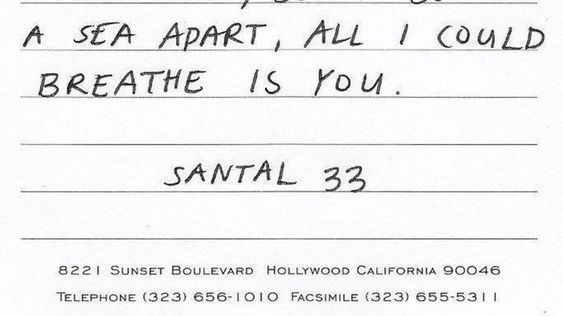 A SEA APART, ALL I COULD
BREATHE IS YOU.
SANTAL 33
8221 SUNSET BOULEVARD HOLLYWOOD CALIFORNIA 90046
TELEPHONE (323) 656-1010 FACSIMILE (323) 655-5311